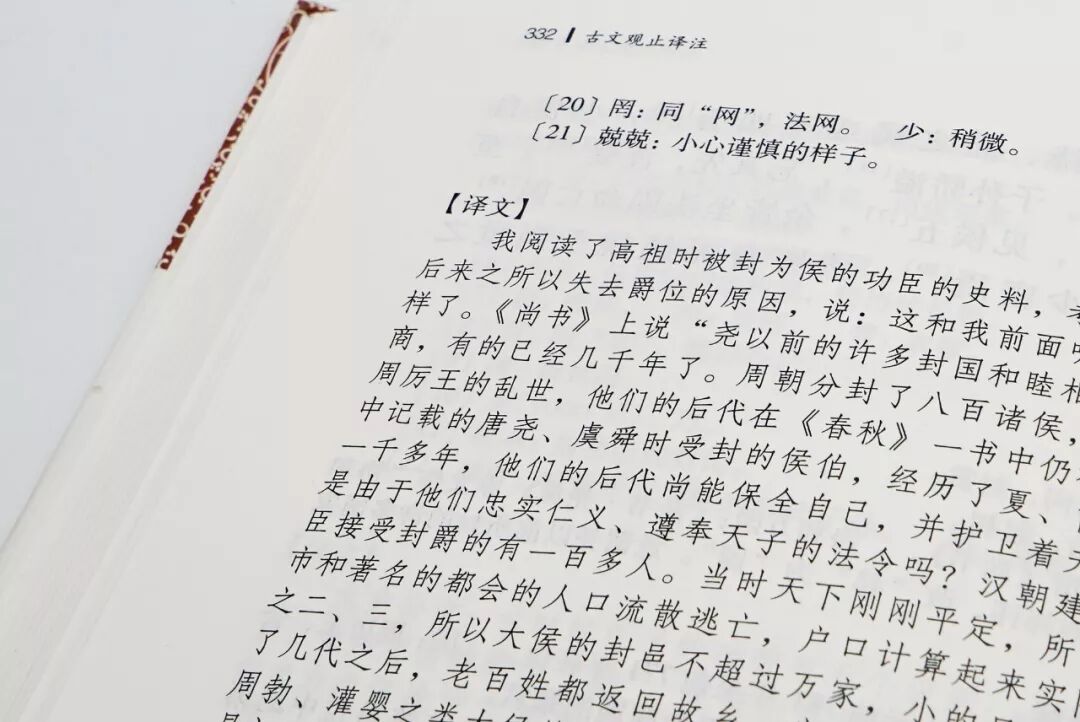 332 古文观止译注
〔20〕罔：同“网”，法网。 少：稍微。
〔21〕兢兢：小心谨慎的样子。
【译文】
我阅读了高祖时被封为侯的功臣的史料，
后来之所以失去爵位的原因，说：这和我前面
样了。《尚书》上说“尧以前的许多封国和睦相
商，有的已经几千年了。周朝分封了八百诸侯，
周厉王的乱世，他们的后代在《春秋》一书中仍
中记载的唐尧、虞舜时受封的侯伯，经历了夏、
一千多年，他们的后代尚能保全自己，并护卫着天
是由于他们忠实仁义、遵奉天子的法令吗？汉朝建
臣接受封爵的有一百多人。当时天下刚刚平定，所
市和著名的都会的人口流散逃亡，户口计算起来实际
之二、三，所以大侯的封邑不超过万家，小的
了几代之后，老百姓都返回故乡，
周勃、灌婴之类大侯